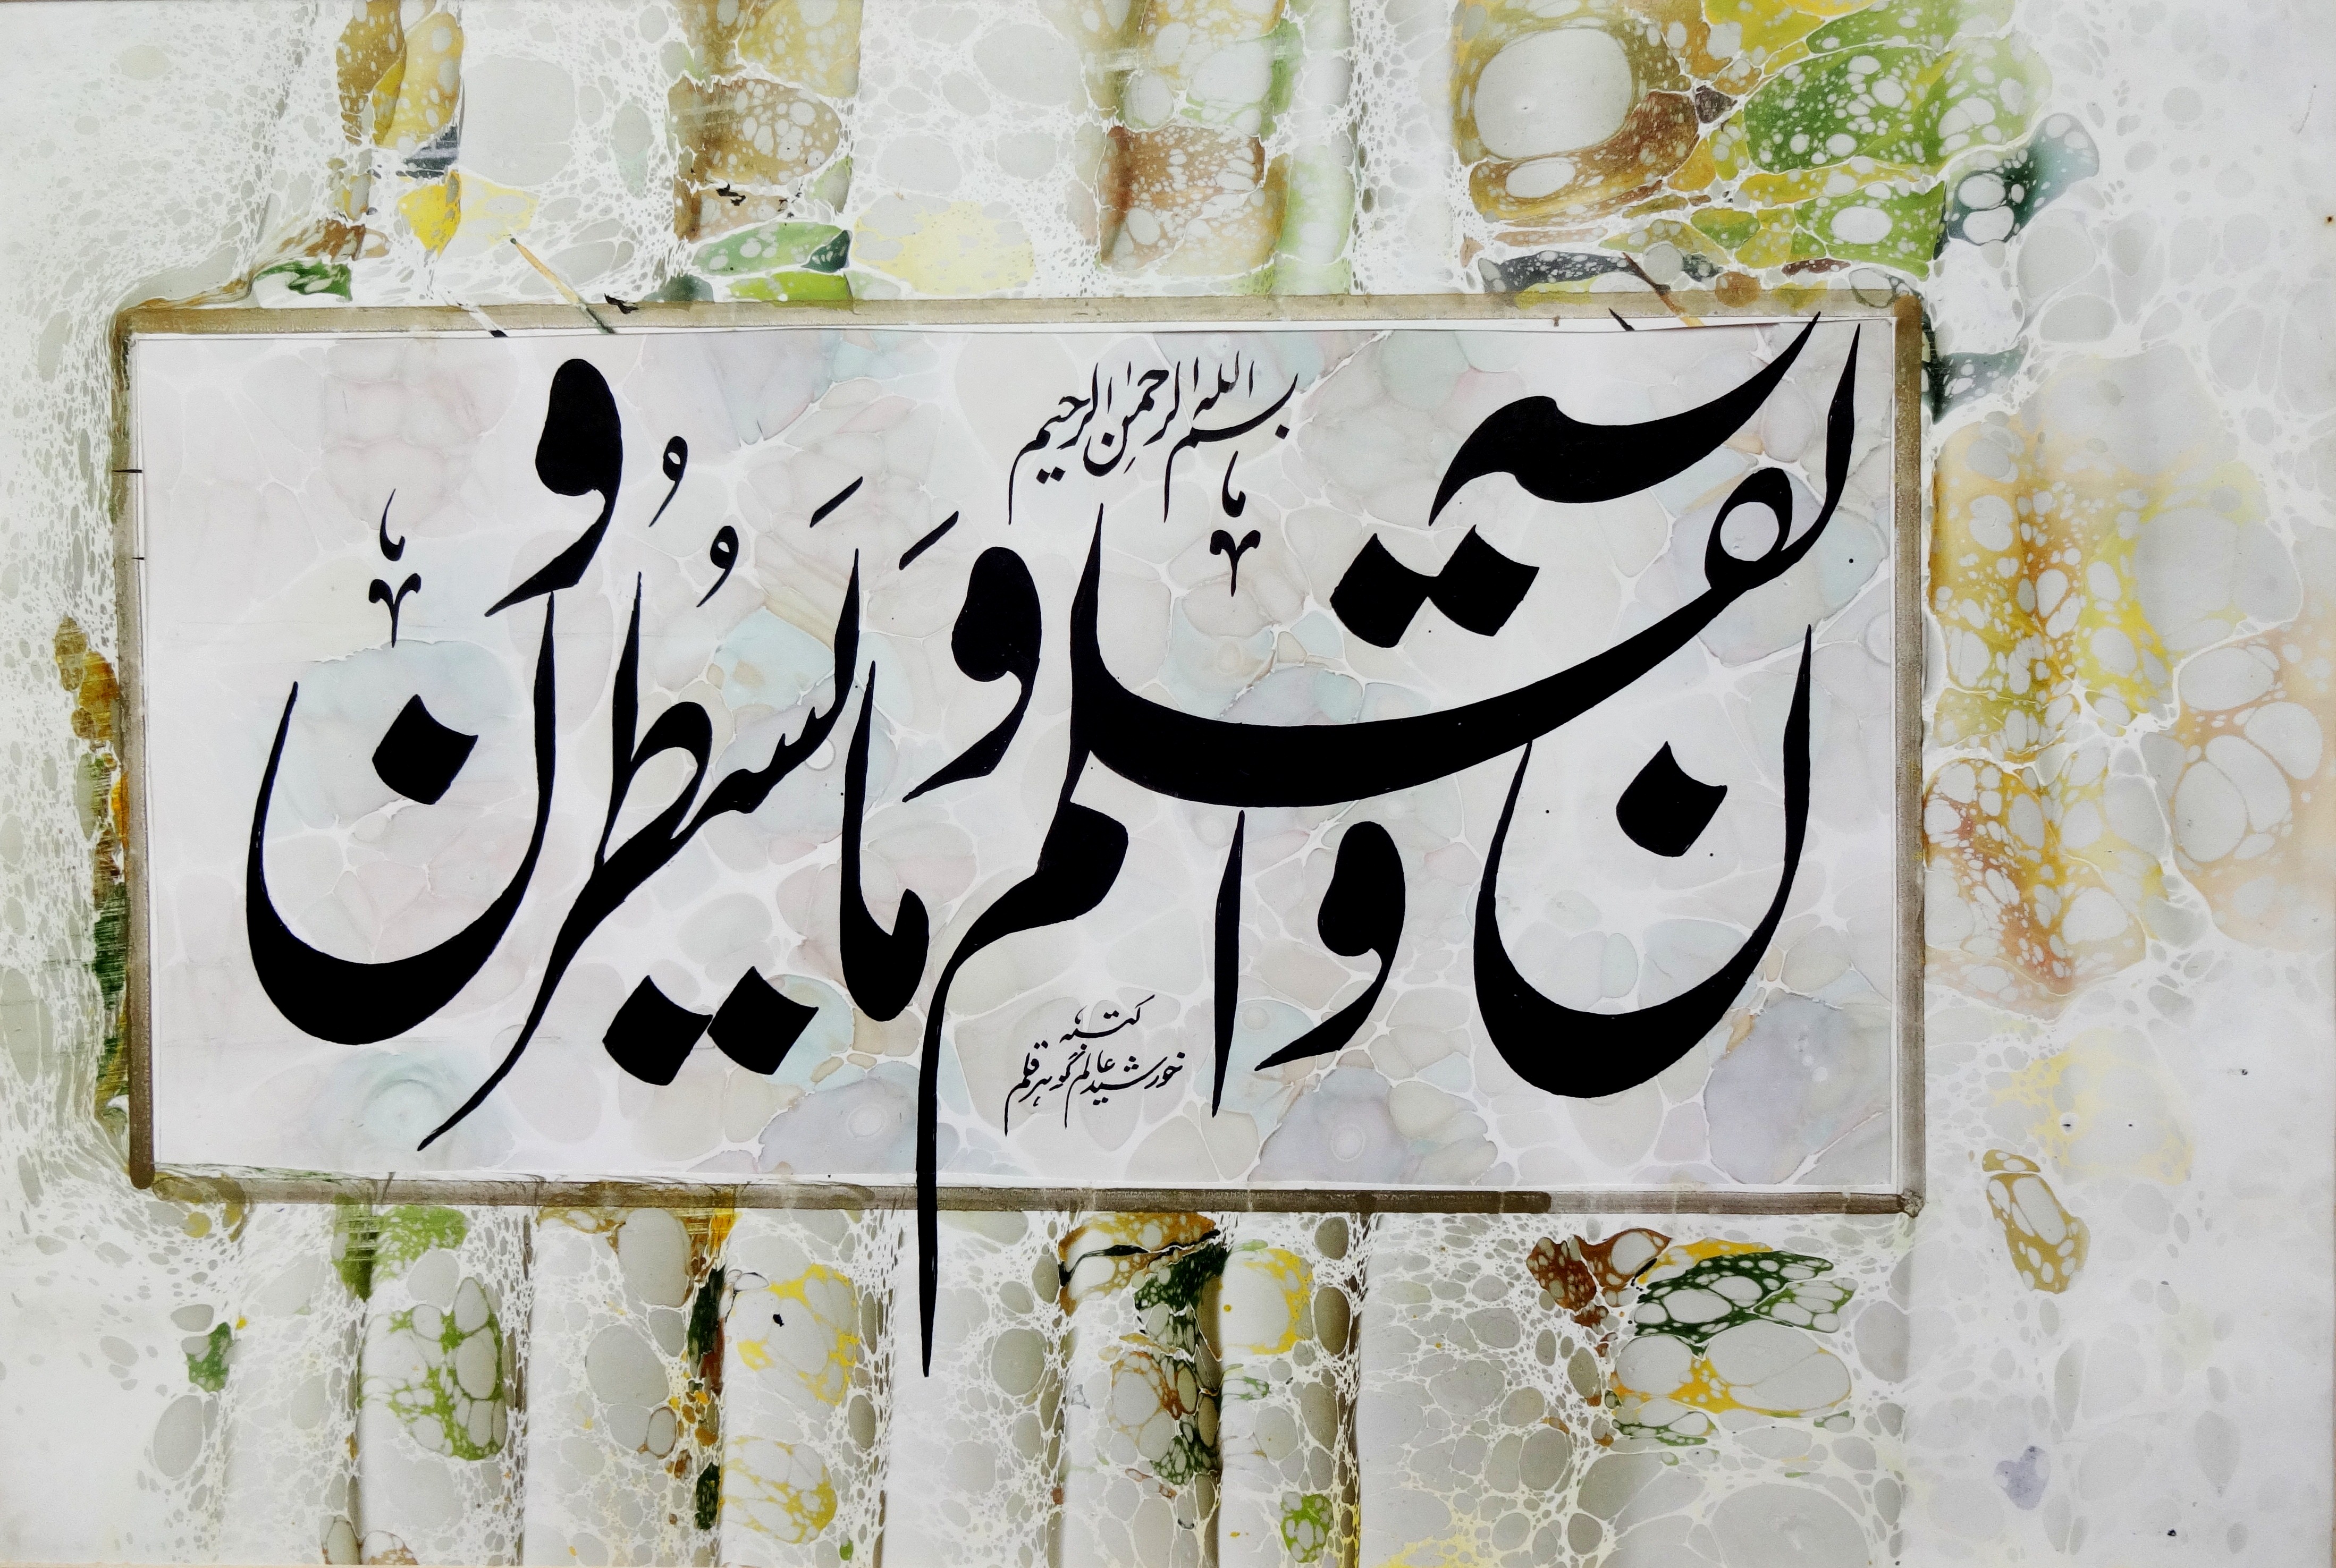 بسم الله الرحمٰن الرحیم
ن والقلم وما یسطرون
کتبه
خورشید عالم گوهر قلم